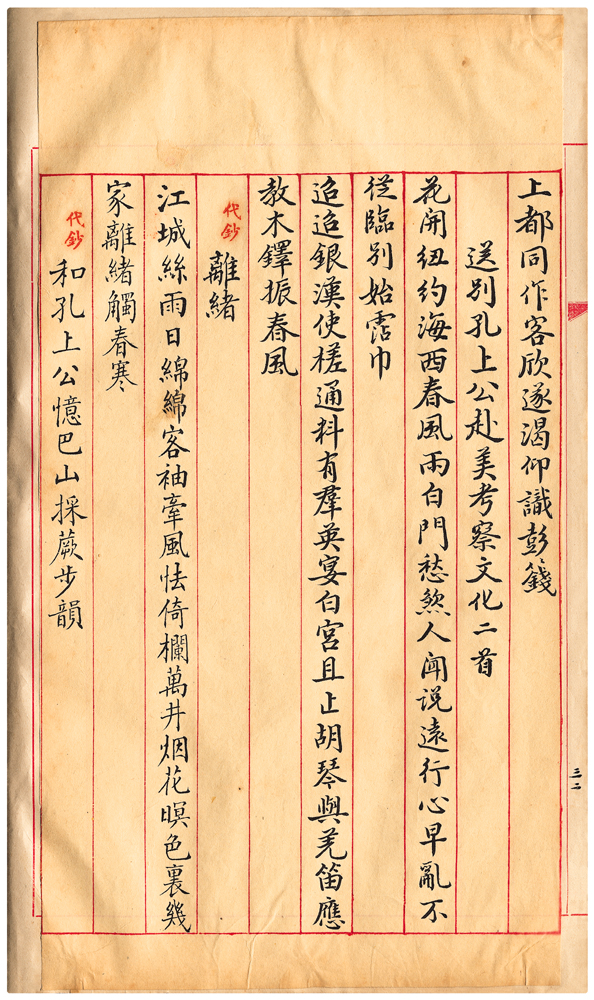 上都同作客欣遂渴仰識彭、籛
送别孔上公赴美考察文化二首
花開紐約海西春風雨白門愁煞人闻说遠行心早亂不
從臨别始霑巾
迢迢銀漢使槎通料有羣英宴白宮且止胡琴與羌笛應
教木鐸振春風
代鈔
離緒
江城絲雨日綿綿客袖牽風怯倚欄萬井烟花暝色裏幾
家離緒觸春寒
代鈔
和孔上公憶巴山採蕨步韻
三二